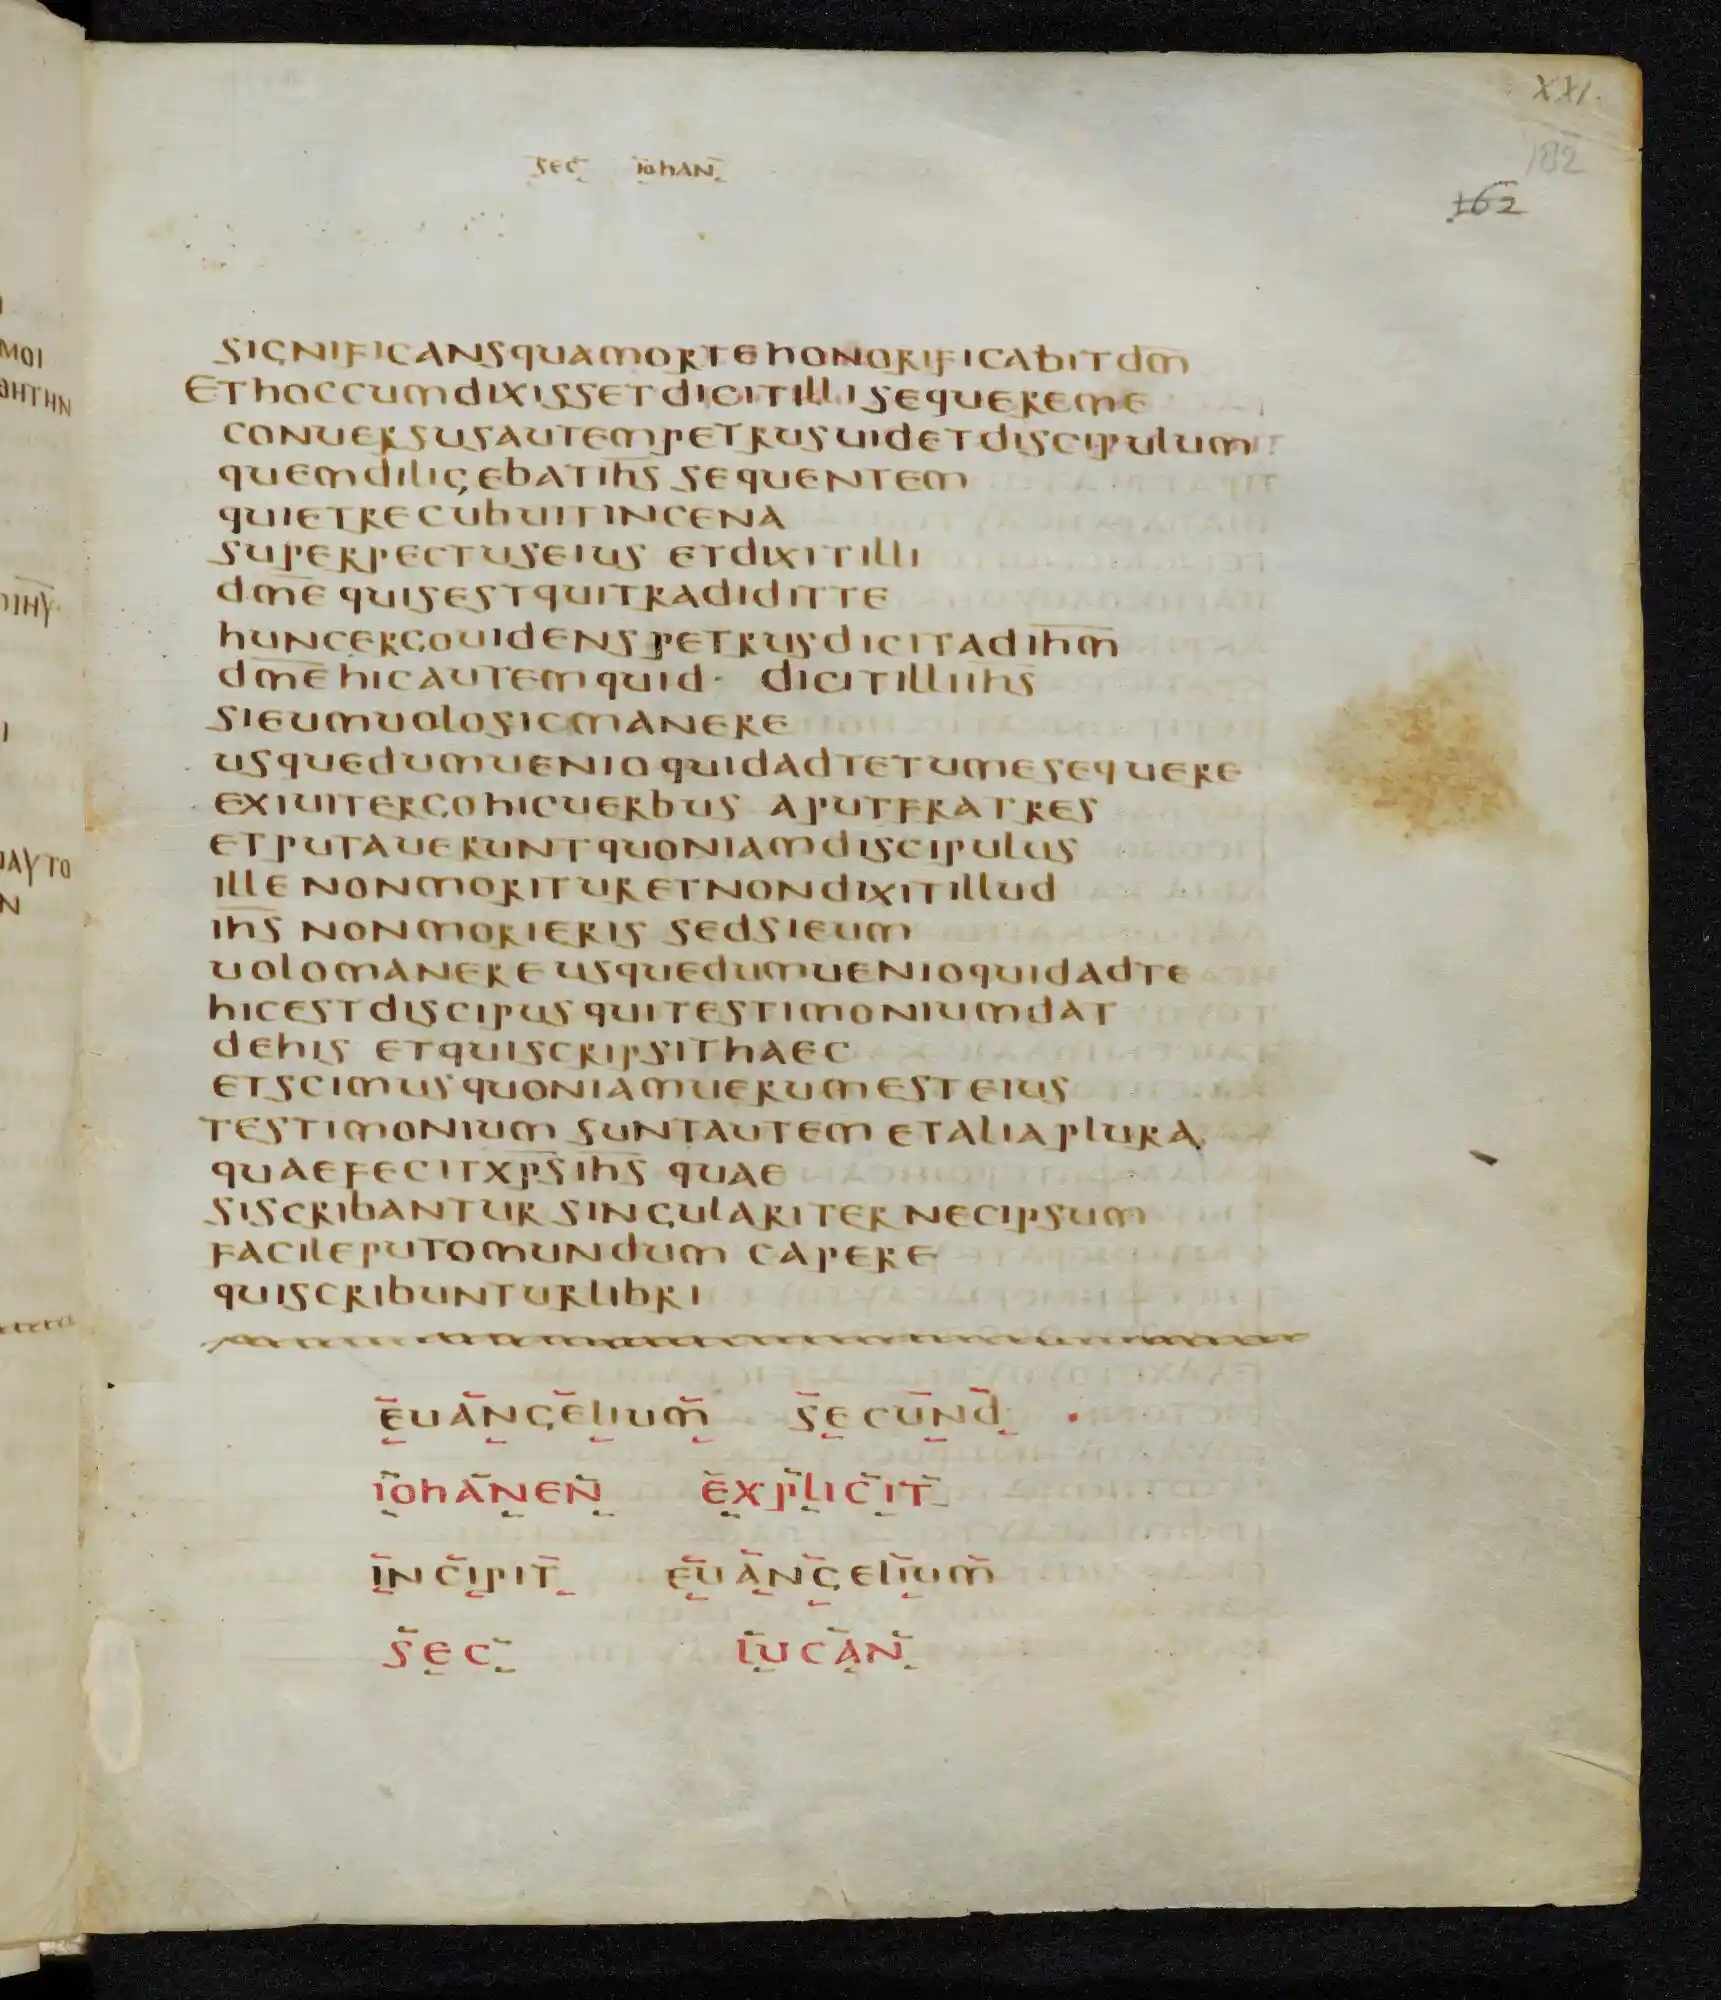 XXI.
182
162
SEC IOHAN
SIGNIFICANSQUAMORTEHONORIFICABITDM̅
ETHOCCUMDIXISSETDICITILLISEQUEREME
CONUERSUSAUTEMPETRUSUIDETDISCIPULUM
QUEMDILIGEBATIH̅S̅ SEQUENTEM
QUIETRECUBUITINCENA
SUPERPECTUSEIUS ETDIXITILLI
DM̅E̅ QUISESTQUITRADIDITTE
HUNCERGOUIDENSPETRUSDICITADIH̅M̅
DM̅E̅HICAUTEMQUID· DICITILLIIH̅S̅
SIEUMUOLOSICMANERE
USQUEDUMUENIOQUIDADTETUMESEQUERE
EXIUITERGOHICUERBUS APUTFRATRES
ETPUTAUERUNTQUONIAMDISCIPULUS
ILLENONMORITURETNONDIXITILLUD
IH̅S̅ NONMORIERIS SEDSIEUM
UOLOMANEREUSQUEDUMUENIOQUIDADTE
HICESTDISCIPUSQUITESTIMONIUMDAT
DEHIS ETQUISCRIPSITHAEC
ETSCIMUSQUONIAMUERUMESTEIUS
TESTIMONIUM SUNTAUTEMETALIAPLURA
QUAEFECITXP̅S̅IH̅S̅ QUAE
SISCRIBANTURSINGULARITERNECIPSUM
FACILEPUTOMUNDUM CAPERE
QUISCRIBUNTURLIBRI
EUANGELIUM SECUND
IOHANEN EXPLICIT
INCIPIT EUANGELIUM
SEC LUCAN